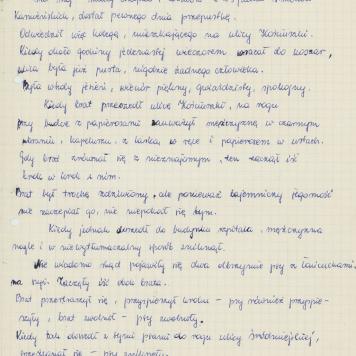 Kamieńskich, dostał pewnego dnia przepustkę.
Odwiedził więc kolegę, mieszkającego na ulicy Kościuszki.
Kiedy około godziny jedenastej wieczorem wracał do koszar,
ulica była już pusta, nigdzie żadnego człowieka.
Była wtedy jesień, wieczór piękny, gwiaździsty, spokojny.
Kiedy brat przechodził ulicą Kościuszki, na rogu
przy budce z papierosami zauważył mężczyznę w czarnym
kapeluszu, z laską w ręce i papierosem w ustach.
Gdy brat zrównał się z nieznajomym, ten zaczął iść
krok w krok z nim.
Brat był trochę zdziwiony, ale ponieważ tajemniczy jegomość
nie zaczepiał go, nie niepokoił się tym.
Kiedy jednak doszedł do budynku szpitala, mężczyzna
nagle i w niewytłumaczalny sposób zniknął.
Nie wiadomo skąd pojawiły się dwa olbrzymie psy z łańcuchami
na szyi. Zaczęły iść obok brata.
Brat przestraszył się, przyspieszył kroku – psy również przyspie-
szyły, brat zwolnił – psy zwolniły.
Kiedy tak doszedł z tymi psami do rogu ulicy